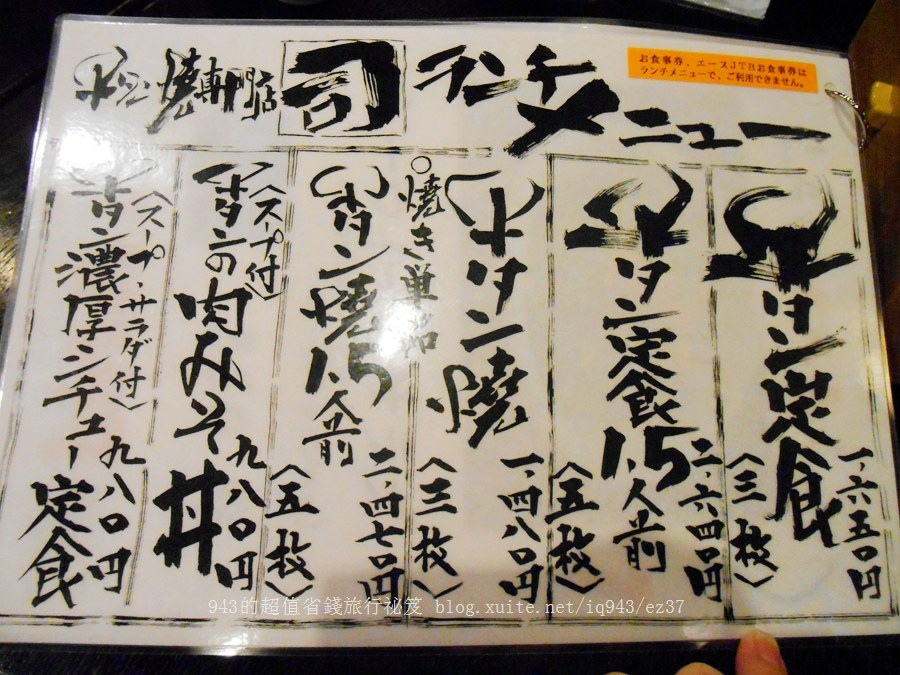 牛タン焼専門店 司 ランチメニュー
お食事券、エースJTBお食事券は
ランチメニューで、ご利用できません。
牛タン定食
一、六五〇円
〈三枚〉
牛タン定食1.5人前
二、六四〇円
〈五枚〉
牛タン焼
一、四八〇円
〈三枚〉
○焼き単品
牛タン焼1.5人前
二、四七〇円
〈五枚〉
〈スープ付〉
牛タンの肉みそ丼
九八〇円
〈スープ・サラダ付〉
牛タン濃厚シチュー定食
九八〇円
943的超值省錢旅行祕笈 blog.xuite.net/iq943/ez37